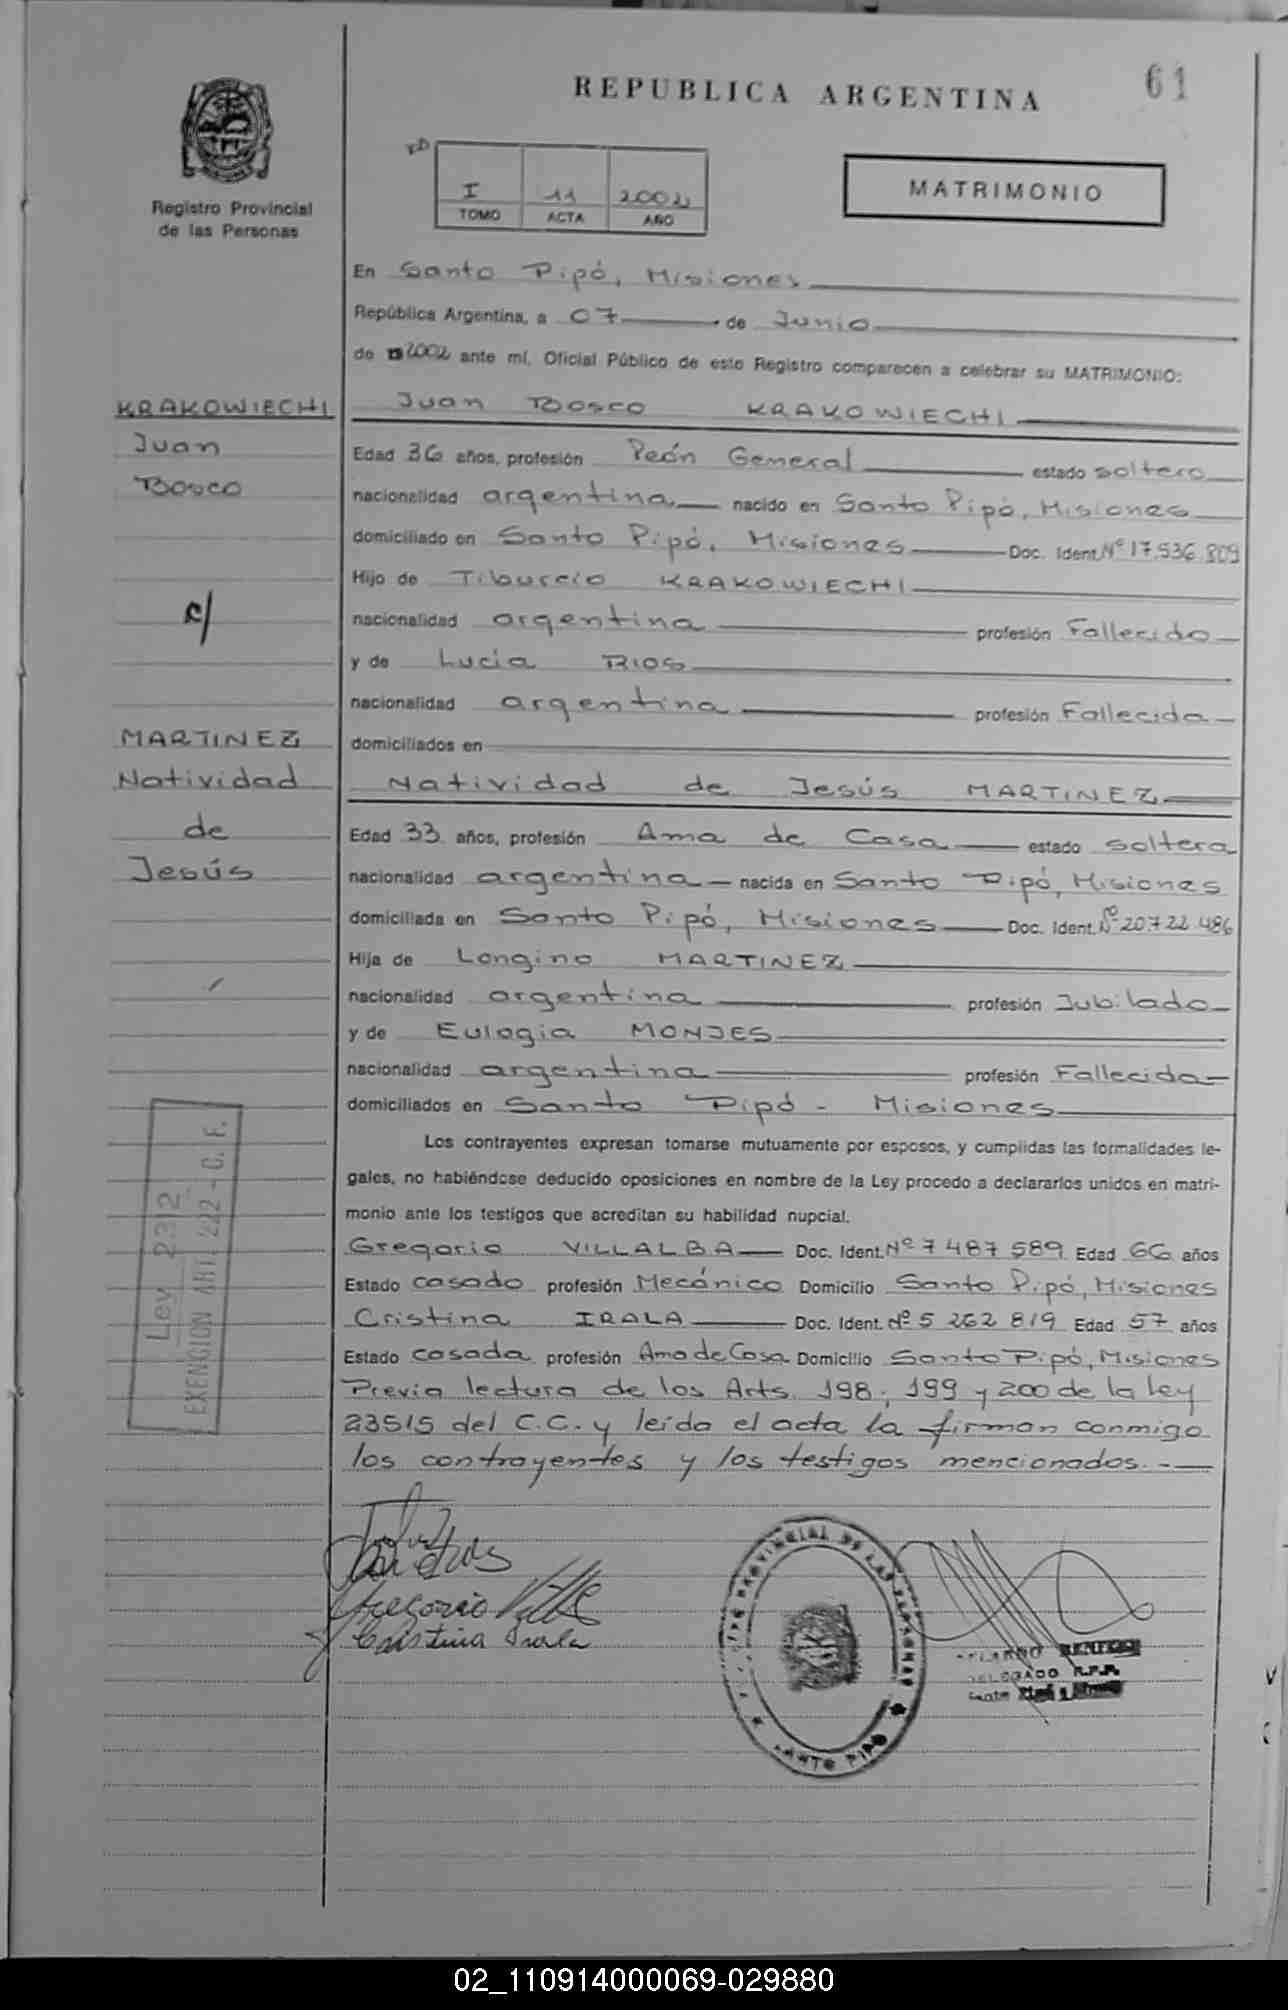 61
REPUBLICA ARGENTINA
Registro Provincial
de las Personas
I 11 2002
TOMO ACTA AÑO
MATRIMONIO
En Santo Pipó, Misiones
República Argentina, a 07 de Junio
de 2002 ante mí, Oficial Público de este Registro comparecen a celebrar su MATRIMONIO:
KRAKOWIECHI
Juan
Bosco
c/
MARTINEZ
Natividad
de
Jesús
Juan Bosco KRAKOWIECHI
Edad 36 años, profesión Peón General estado soltero
nacionalidad argentina nacido en Santo Pipó, Misiones
domiciliado en Santo Pipó, Misiones Doc. Ident. Nº 17.536.809
Hijo de Tiburcio KRAKOWIECHI
nacionalidad argentina profesión Fallecido
y de Lucia RIOS
nacionalidad argentina profesión Fallecida
domiciliados en
Natividad de Jesús MARTINEZ
Edad 33 años, profesión Ama de Casa estado soltera
nacionalidad argentina nacida en Santo Pipó, Misiones
domiciliada en Santo Pipó, Misiones Doc. Ident. Nº 20.722.486
Hija de Longino MARTINEZ
nacionalidad argentina profesión Jubilado
y de Eulogia MONJES
nacionalidad argentina profesión Fallecida
domiciliados en Santo Pipó - Misiones
Los contrayentes expresan tomarse mutuamente por esposos, y cumplidas las formalidades le-
gales, no habiéndose deducido oposiciones en nombre de la Ley procedo a declararlos unidos en matri-
monio ante los testigos que acreditan su habilidad nupcial.
Gregorio VILLALBA Doc. Ident. Nº 7 487 589 Edad 66 años
Estado casado profesión Mecánico Domicilio Santo Pipó, Misiones
Cristina IRALA Doc. Ident. Nº 5 262 819 Edad 57 años
Estado casada profesión Ama de Casa Domicilio Santo Pipó, Misiones
Previa lectura de los Arts. 198, 199 y 200 de la ley
23515 del C.C. y leída el acta la firman conmigo
los contrayentes y los testigos mencionados.-
Ley 2312
EXENCION ART. 222 - C. F.
Gregorio
Cristina Irala
PROVINCIAL DE LAS PERSONAS
SANTO PIPO
DELEGADO R.P.P.
02_110914000069-029880